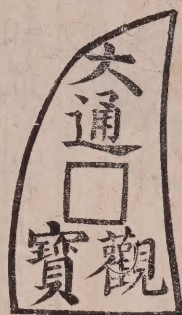 大
通
□
觀寶